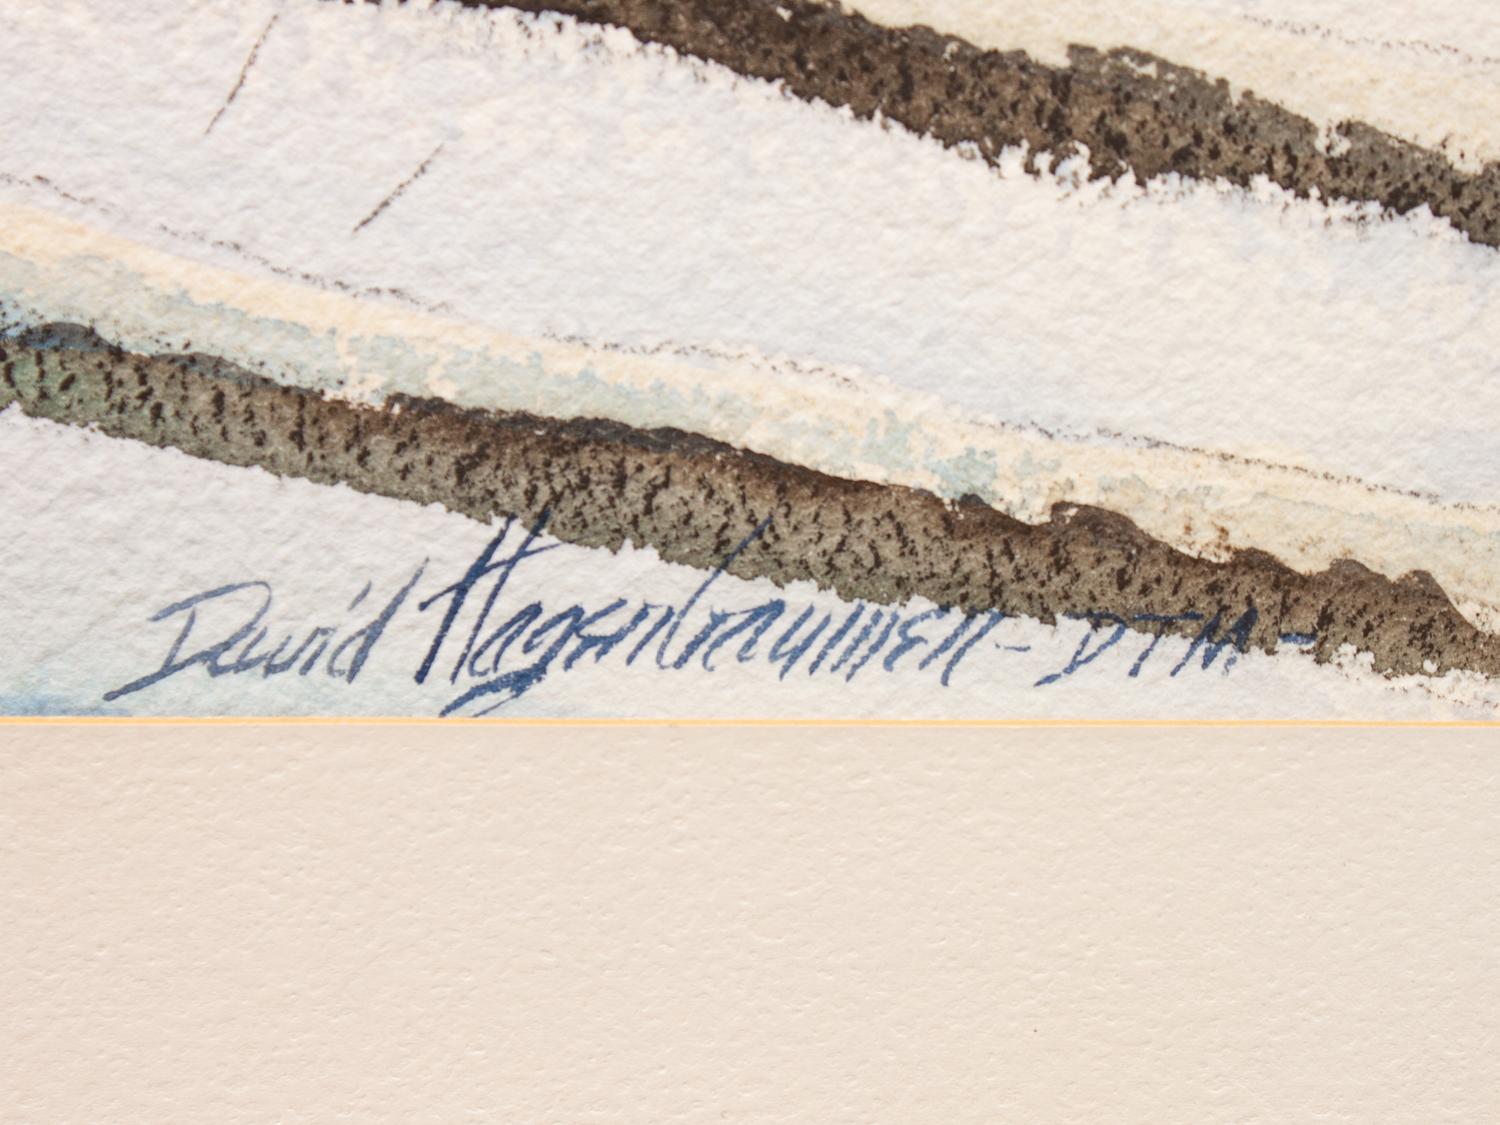 David Hagenbaumer - DTM -